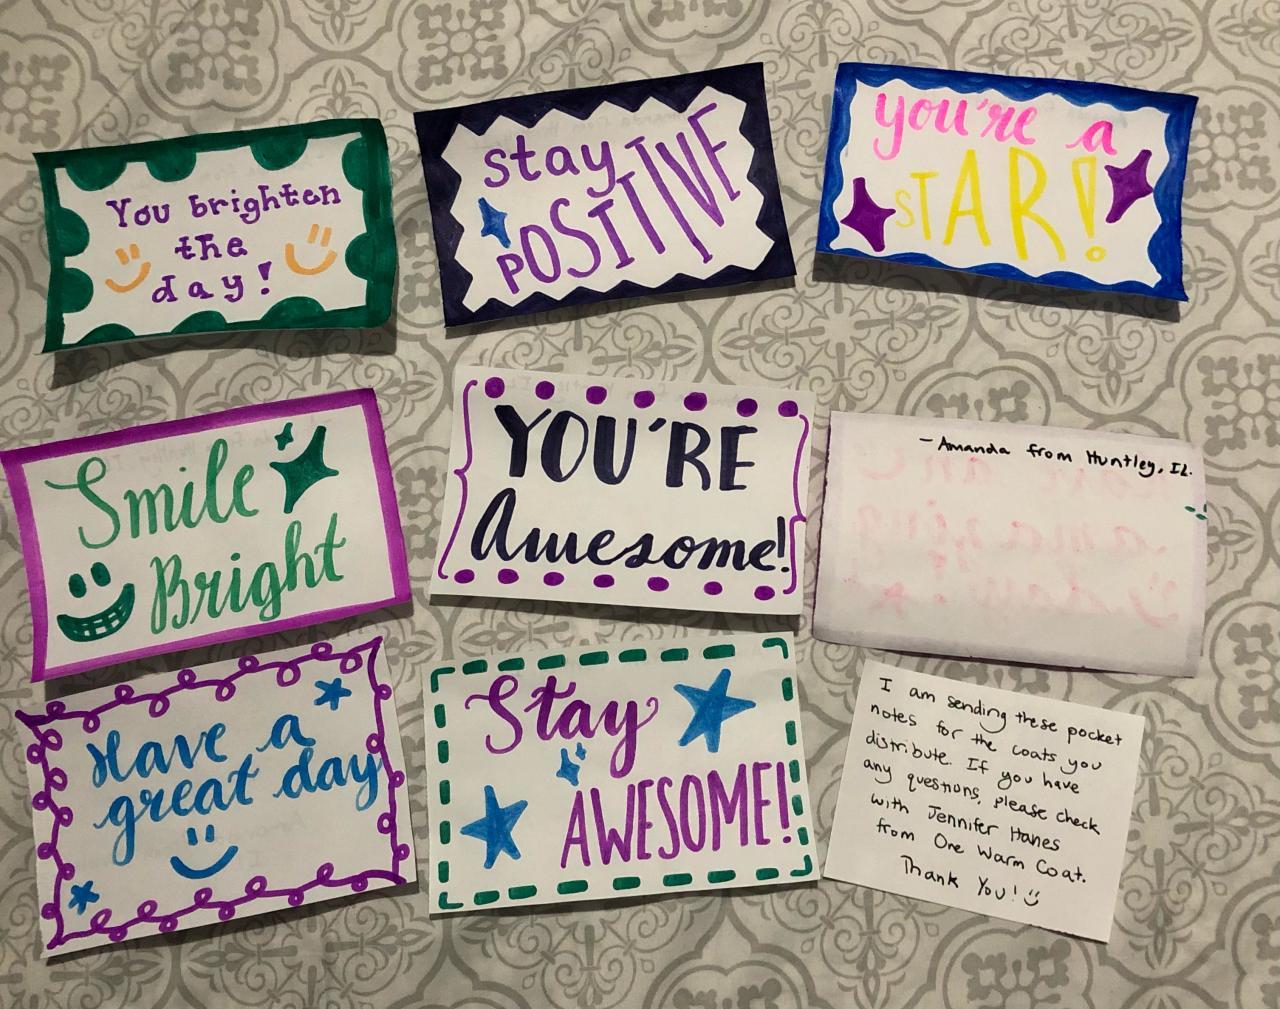 You brighten
the
day!
stay
POSITIVE
you're a
STAR!
Smile
Bright
YOU'RE
Awesome!
- Amanda from Huntley, IL.
Have an
amazing
day!
Have a
great day
Stay
AWESOME!
I am sending these pocket
notes for the coats you
distribute. If you have
any questions, please check
with Jennifer Hanes
from One Warm Coat.
Thank You!